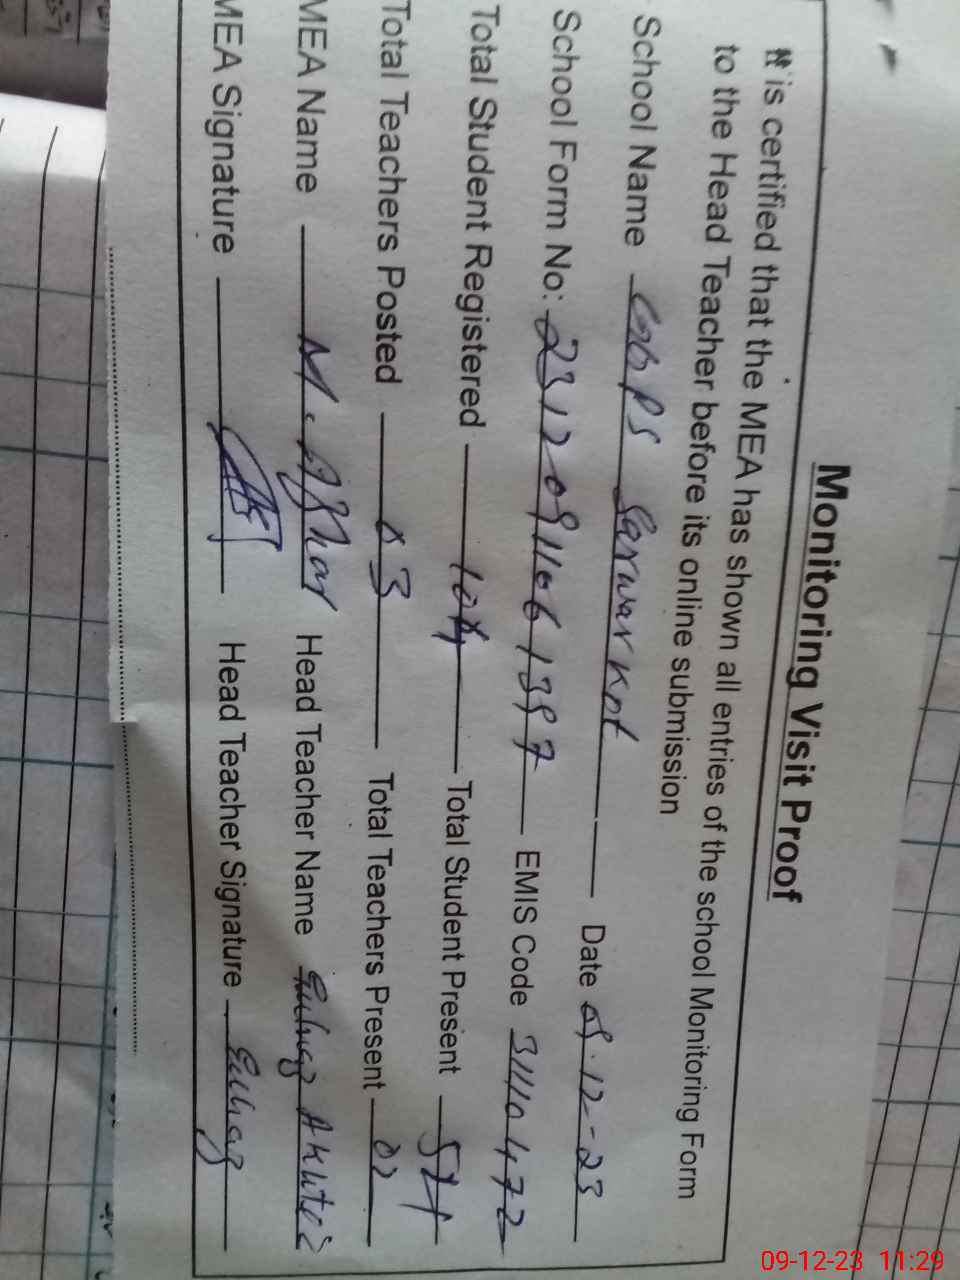 Monitoring Visit Proof
It is certified that the MEA has shown all entries of the school Monitoring Form
to the Head Teacher before its online submission
School Name GGPS Sarwar Kot Date 09-12-23
School Form No: 23120911061397 EMIS Code 31110472
Total Student Registered 104 Total Student Present
Total Teachers Posted 03 Total Teachers Present 02
MEA Name M. Azhar Head Teacher Name Akhter
MEA Signature Head Teacher Signature
09-12-23 11:29